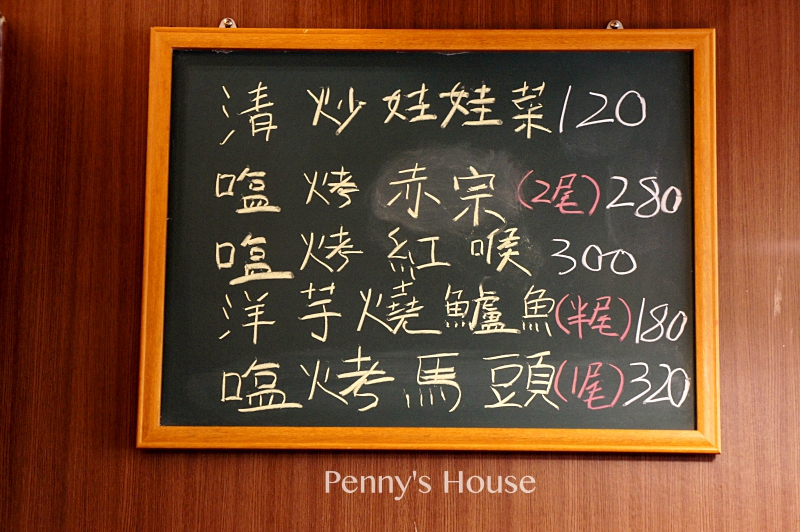 清炒娃娃菜120
塩烤赤宗(2尾)280
塩烤紅喉300
洋芋燒鱸魚(半尾)180
塩烤馬頭(1尾)320
Penny's House